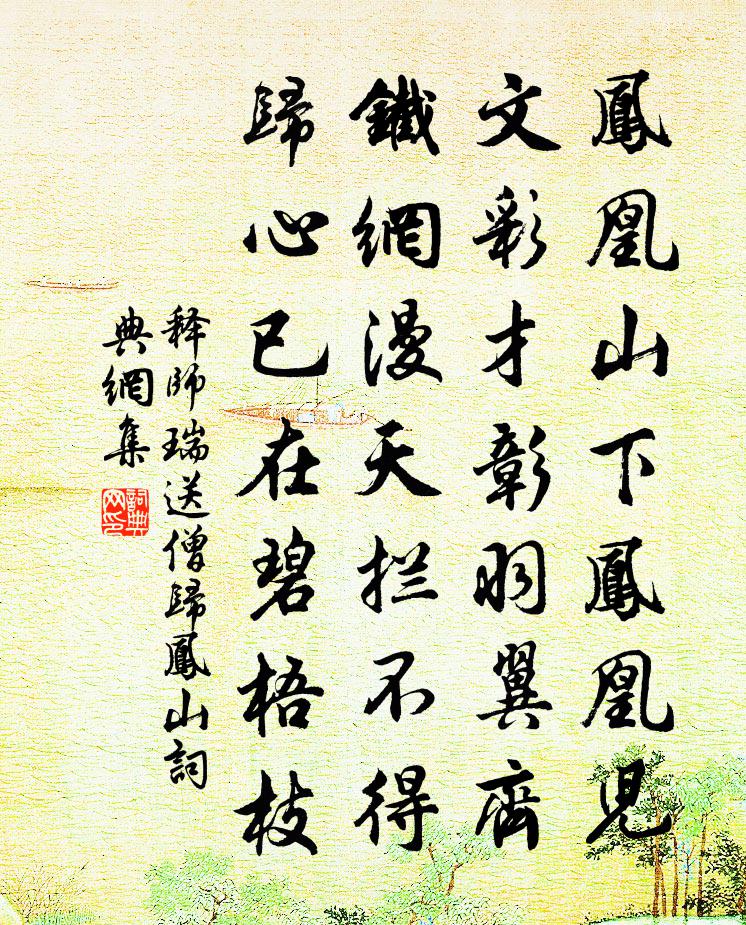 鳳凰山下鳳凰児
文彩才彰羽翼齊
鐵網漫天拦不得
歸心已在碧梧枝
释師瑞送僧歸鳳山詞
典網集
詞典
网印